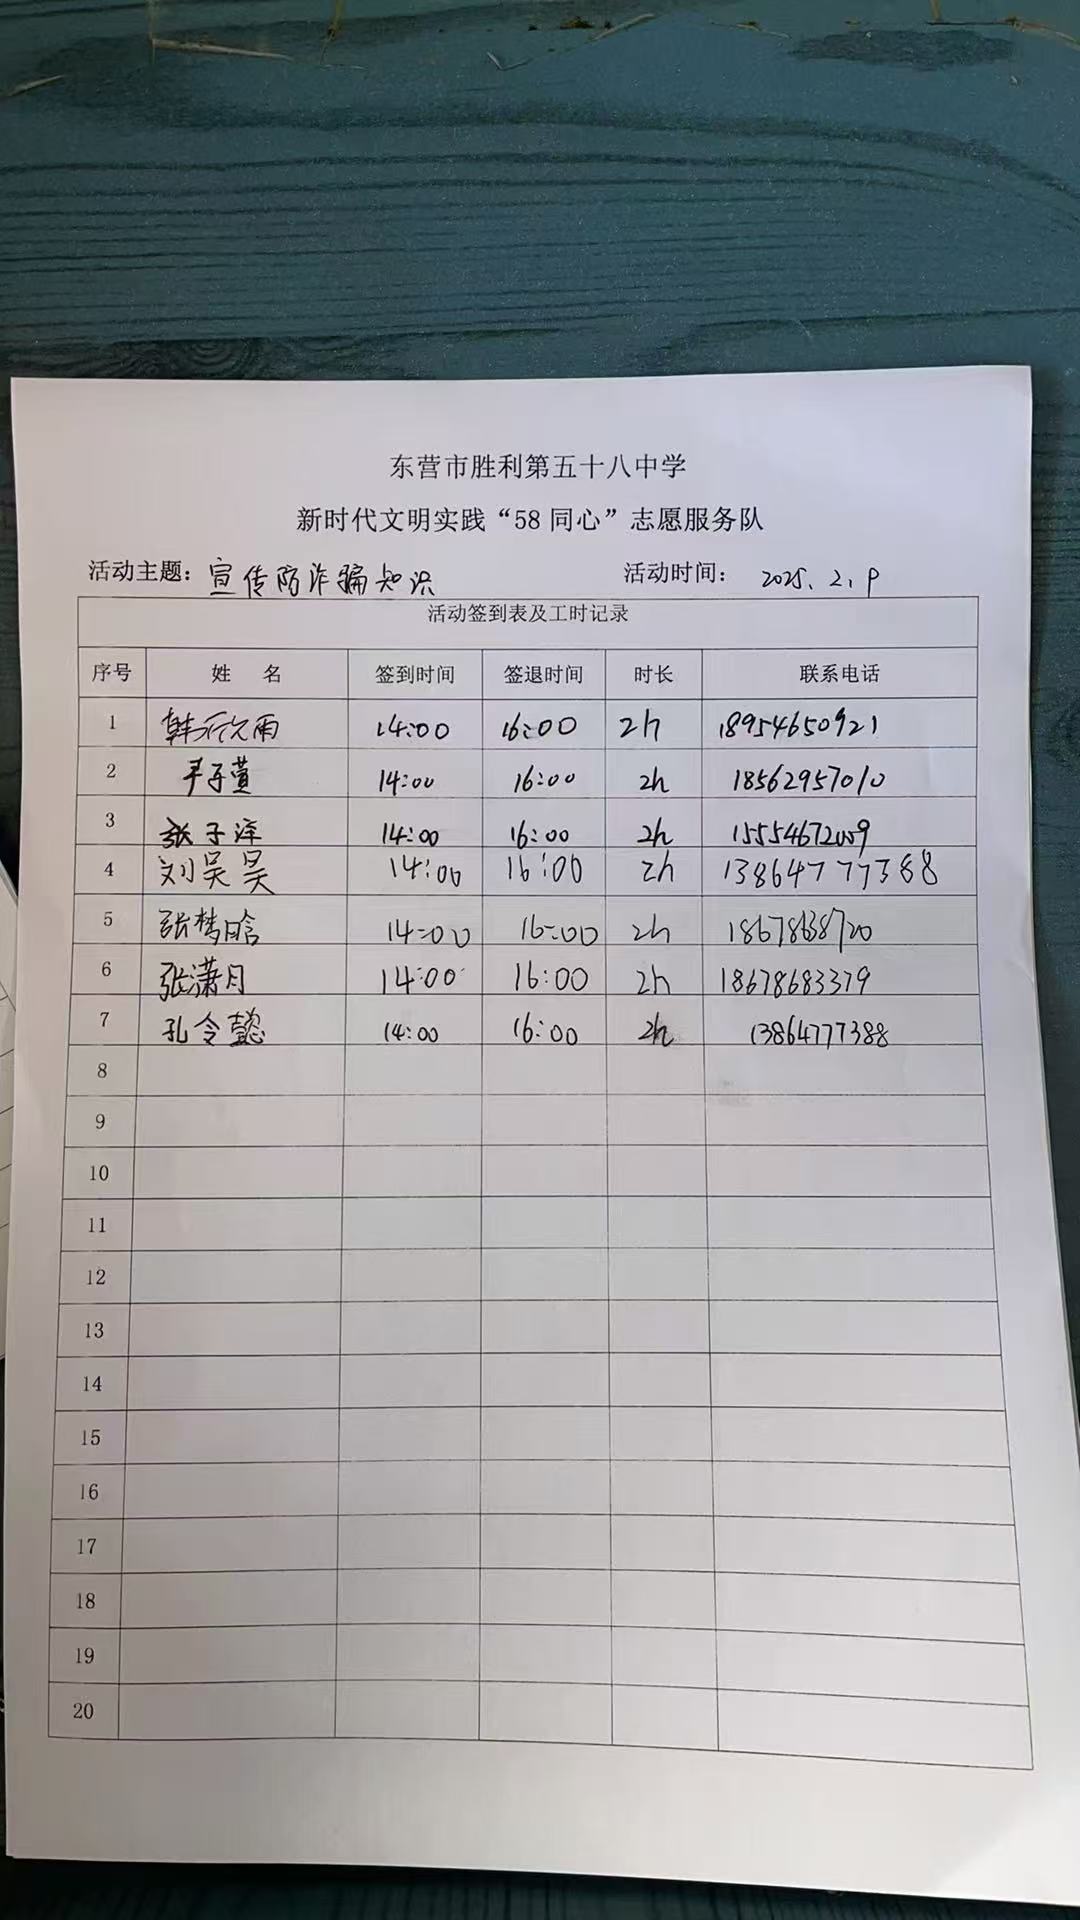 东营市胜利第五十八中学
新时代文明实践“58 同心”志愿服务队
活动主题：宣传防诈骗知识 活动时间： 2025.2.9
活动签到表及工时记录
序号 姓 名 签到时间 签退时间 时长 联系电话
1 韩欣雨 14:00 16:00 2h 18954650921
2 子萱 14:00 16:00 2h 18562957010
3 张子洋 14:00 16:00 2h 15554672009
4 刘昊昊 14:00 16:00 2h 13864777388
5 张梦晗 14:00 16:00 2h
6 张潇月 14:00 16:00 2h 18678683379
7 孔令懿 14:00 16:00 2h 13864777388
8
9
10
11
12
13
14
15
16
17
18
19
20